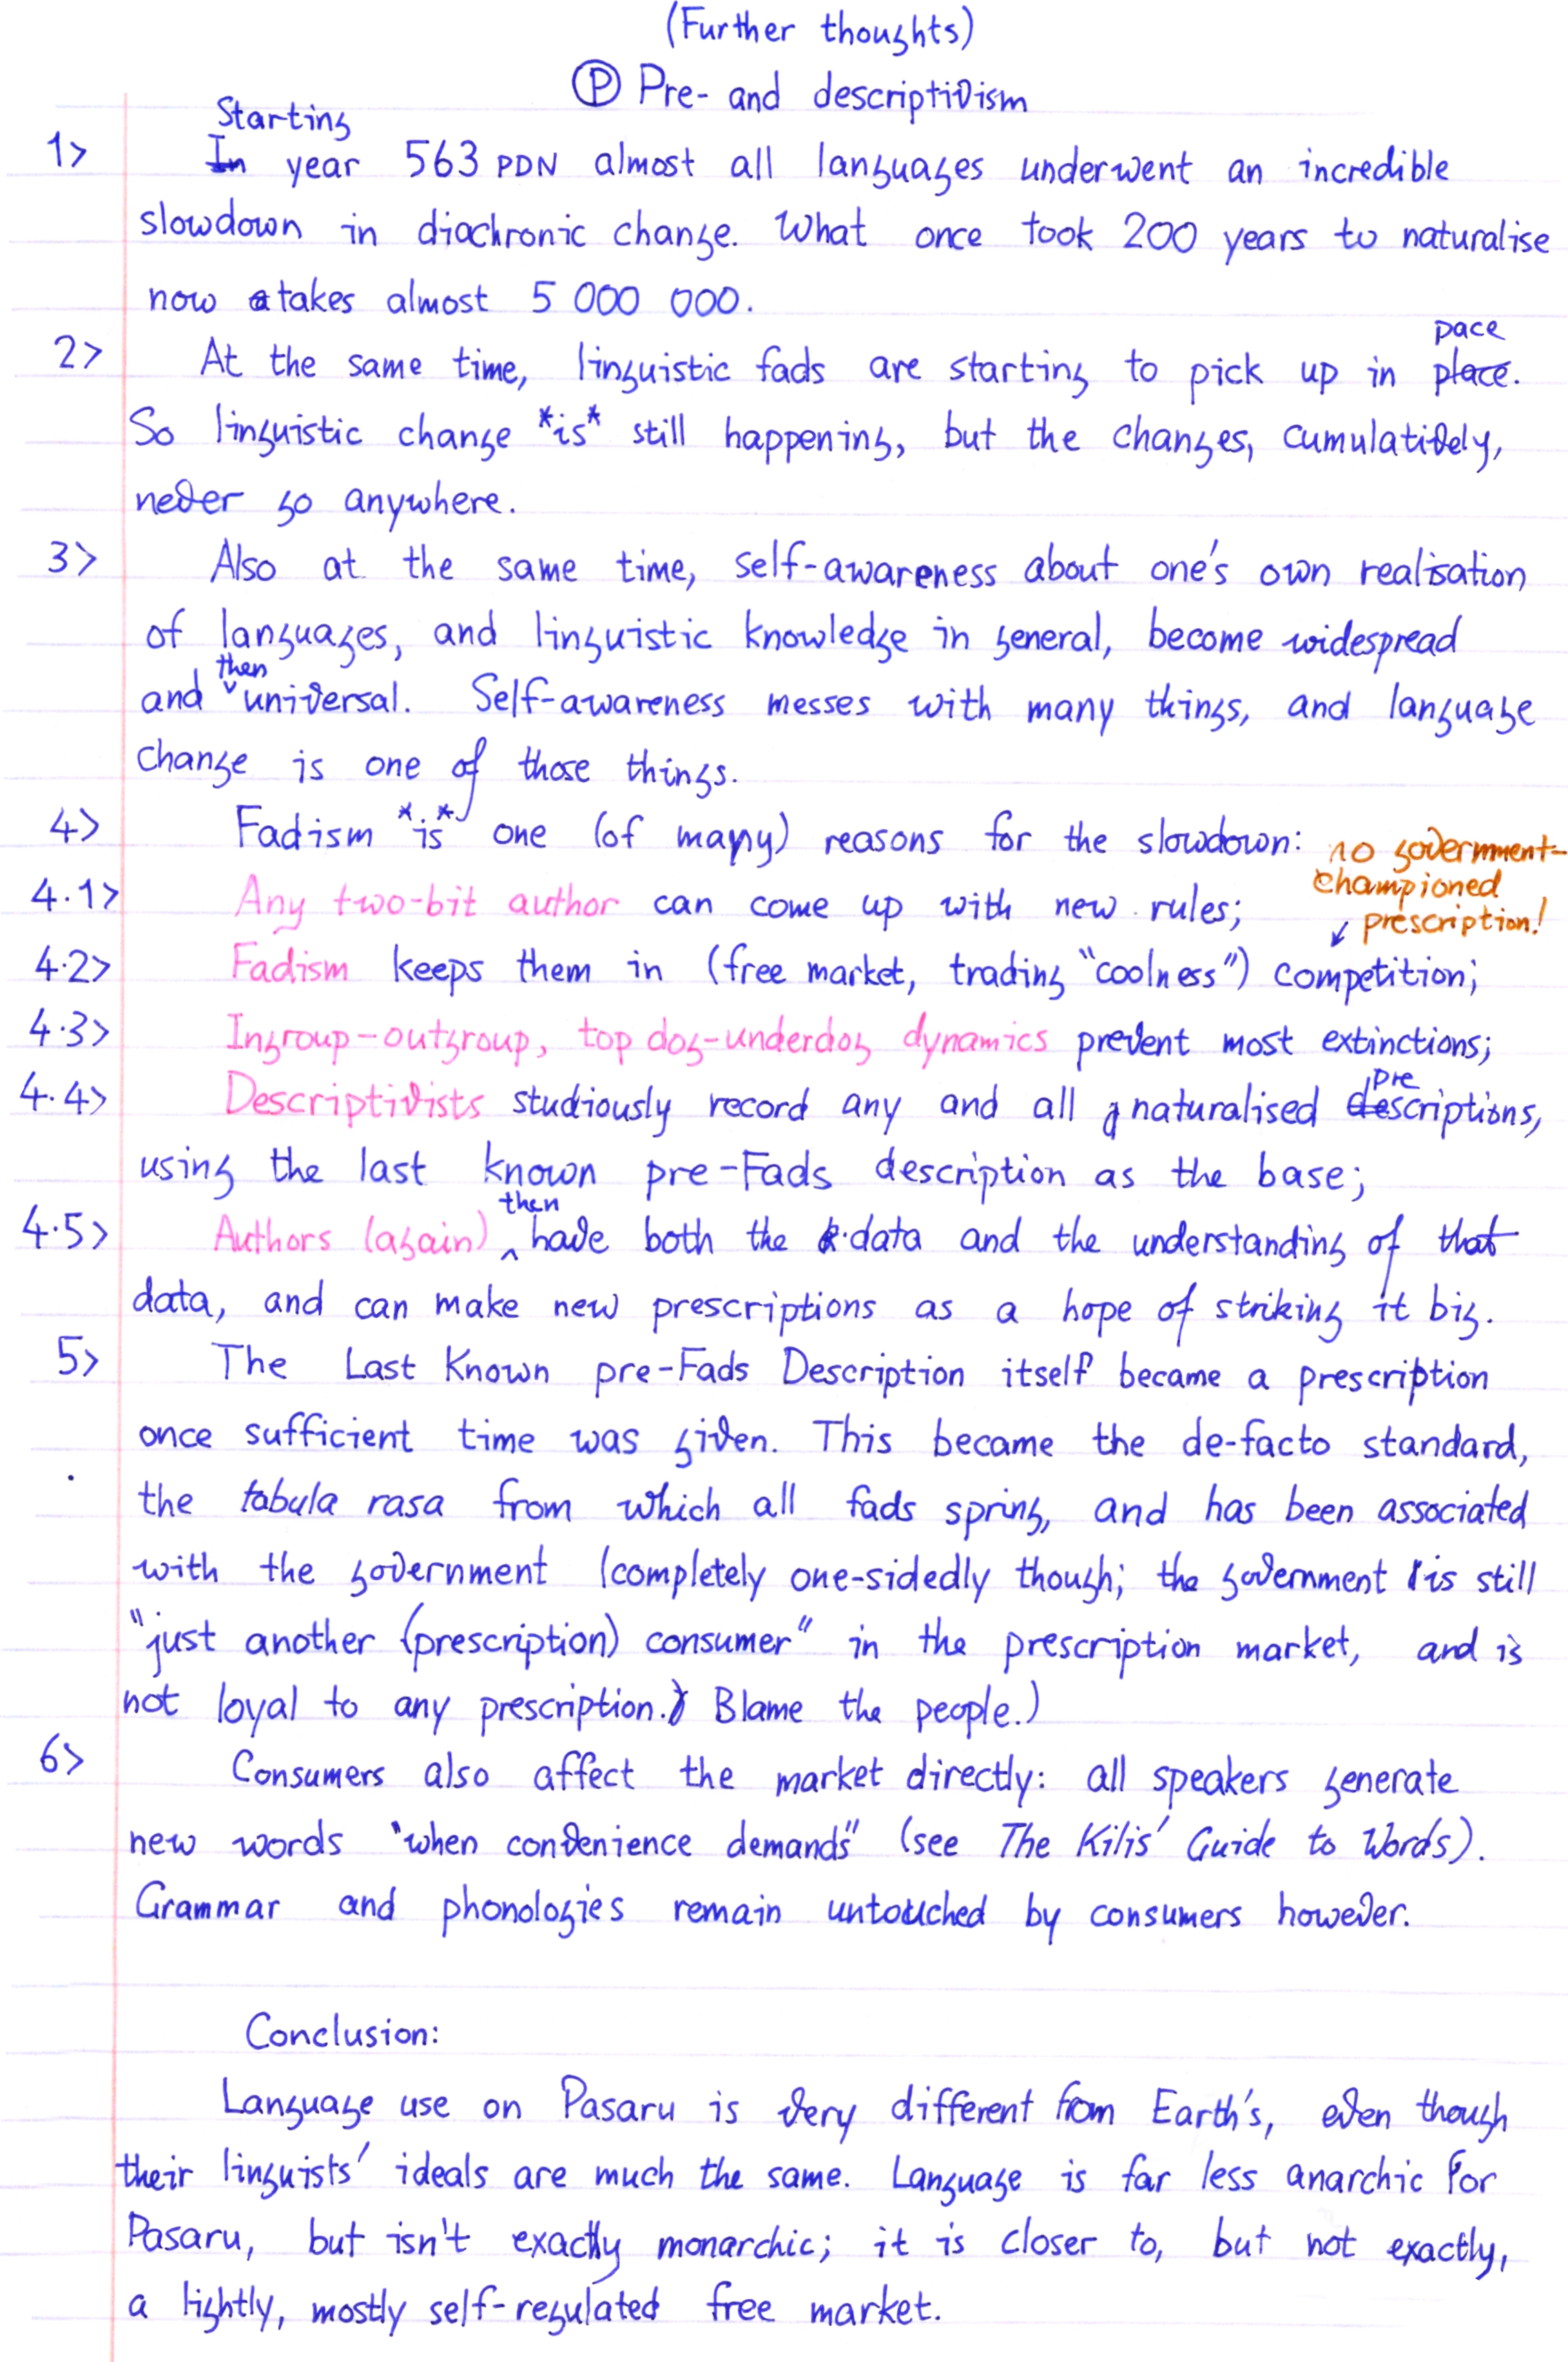 (Further thoughts)
Ⓟ Pre- and descriptivism
Starting
1> In year 563 PDN almost all languages underwent an incredible
slowdown in diachronic change. What once took 200 years to naturalise
now takes almost 5 000 000.
pace
2> At the same time, linguistic fads are starting to pick up in place.
So linguistic change *is* still happening, but the changes, cumulatively,
never go anywhere.
3> Also at the same time, self-awareness about one's own realisation
of languages, and linguistic knowledge in general, become widespread
then
and ˅ universal. Self-awareness messes with many things, and language
change is one of those things.
4> Fadism *is* one (of many) reasons for the slowdown:
no government-
championed
↙ prescription!
4.1> Any two-bit author can come up with new rules;
4.2> Fadism keeps them in (free market, trading "coolness") competition;
4.3> Ingroup-outgroup, top dog-underdog dynamics prevent most extinctions;
pre
4.4> Descriptivists studiously record any and all naturalised descriptions,
using the last known pre-Fads description as the base;
then
4.5> Authors (again) ^ have both the data and the understanding of that
data, and can make new prescriptions as a hope of striking it big.
5> The Last Known pre-Fads Description itself became a prescription
once sufficient time was given. This became the de-facto standard,
the tabula rasa from which all fads spring, and has been associated
with the government (completely one-sidedly though; the government is still
"just another (prescription) consumer" in the prescription market, and is
not loyal to any prescription. Blame the people.)
6> Consumers also affect the market directly: all speakers generate
new words "when convenience demands" (see The Kilis' Guide to Words).
Grammar and phonologies remain untouched by consumers however.
Conclusion:
Language use on Pasaru is very different from Earth's, even though
their linguists' ideals are much the same. Language is far less anarchic for
Pasaru, but isn't exactly monarchic; it is closer to, but not exactly,
a lightly, mostly self-regulated free market.